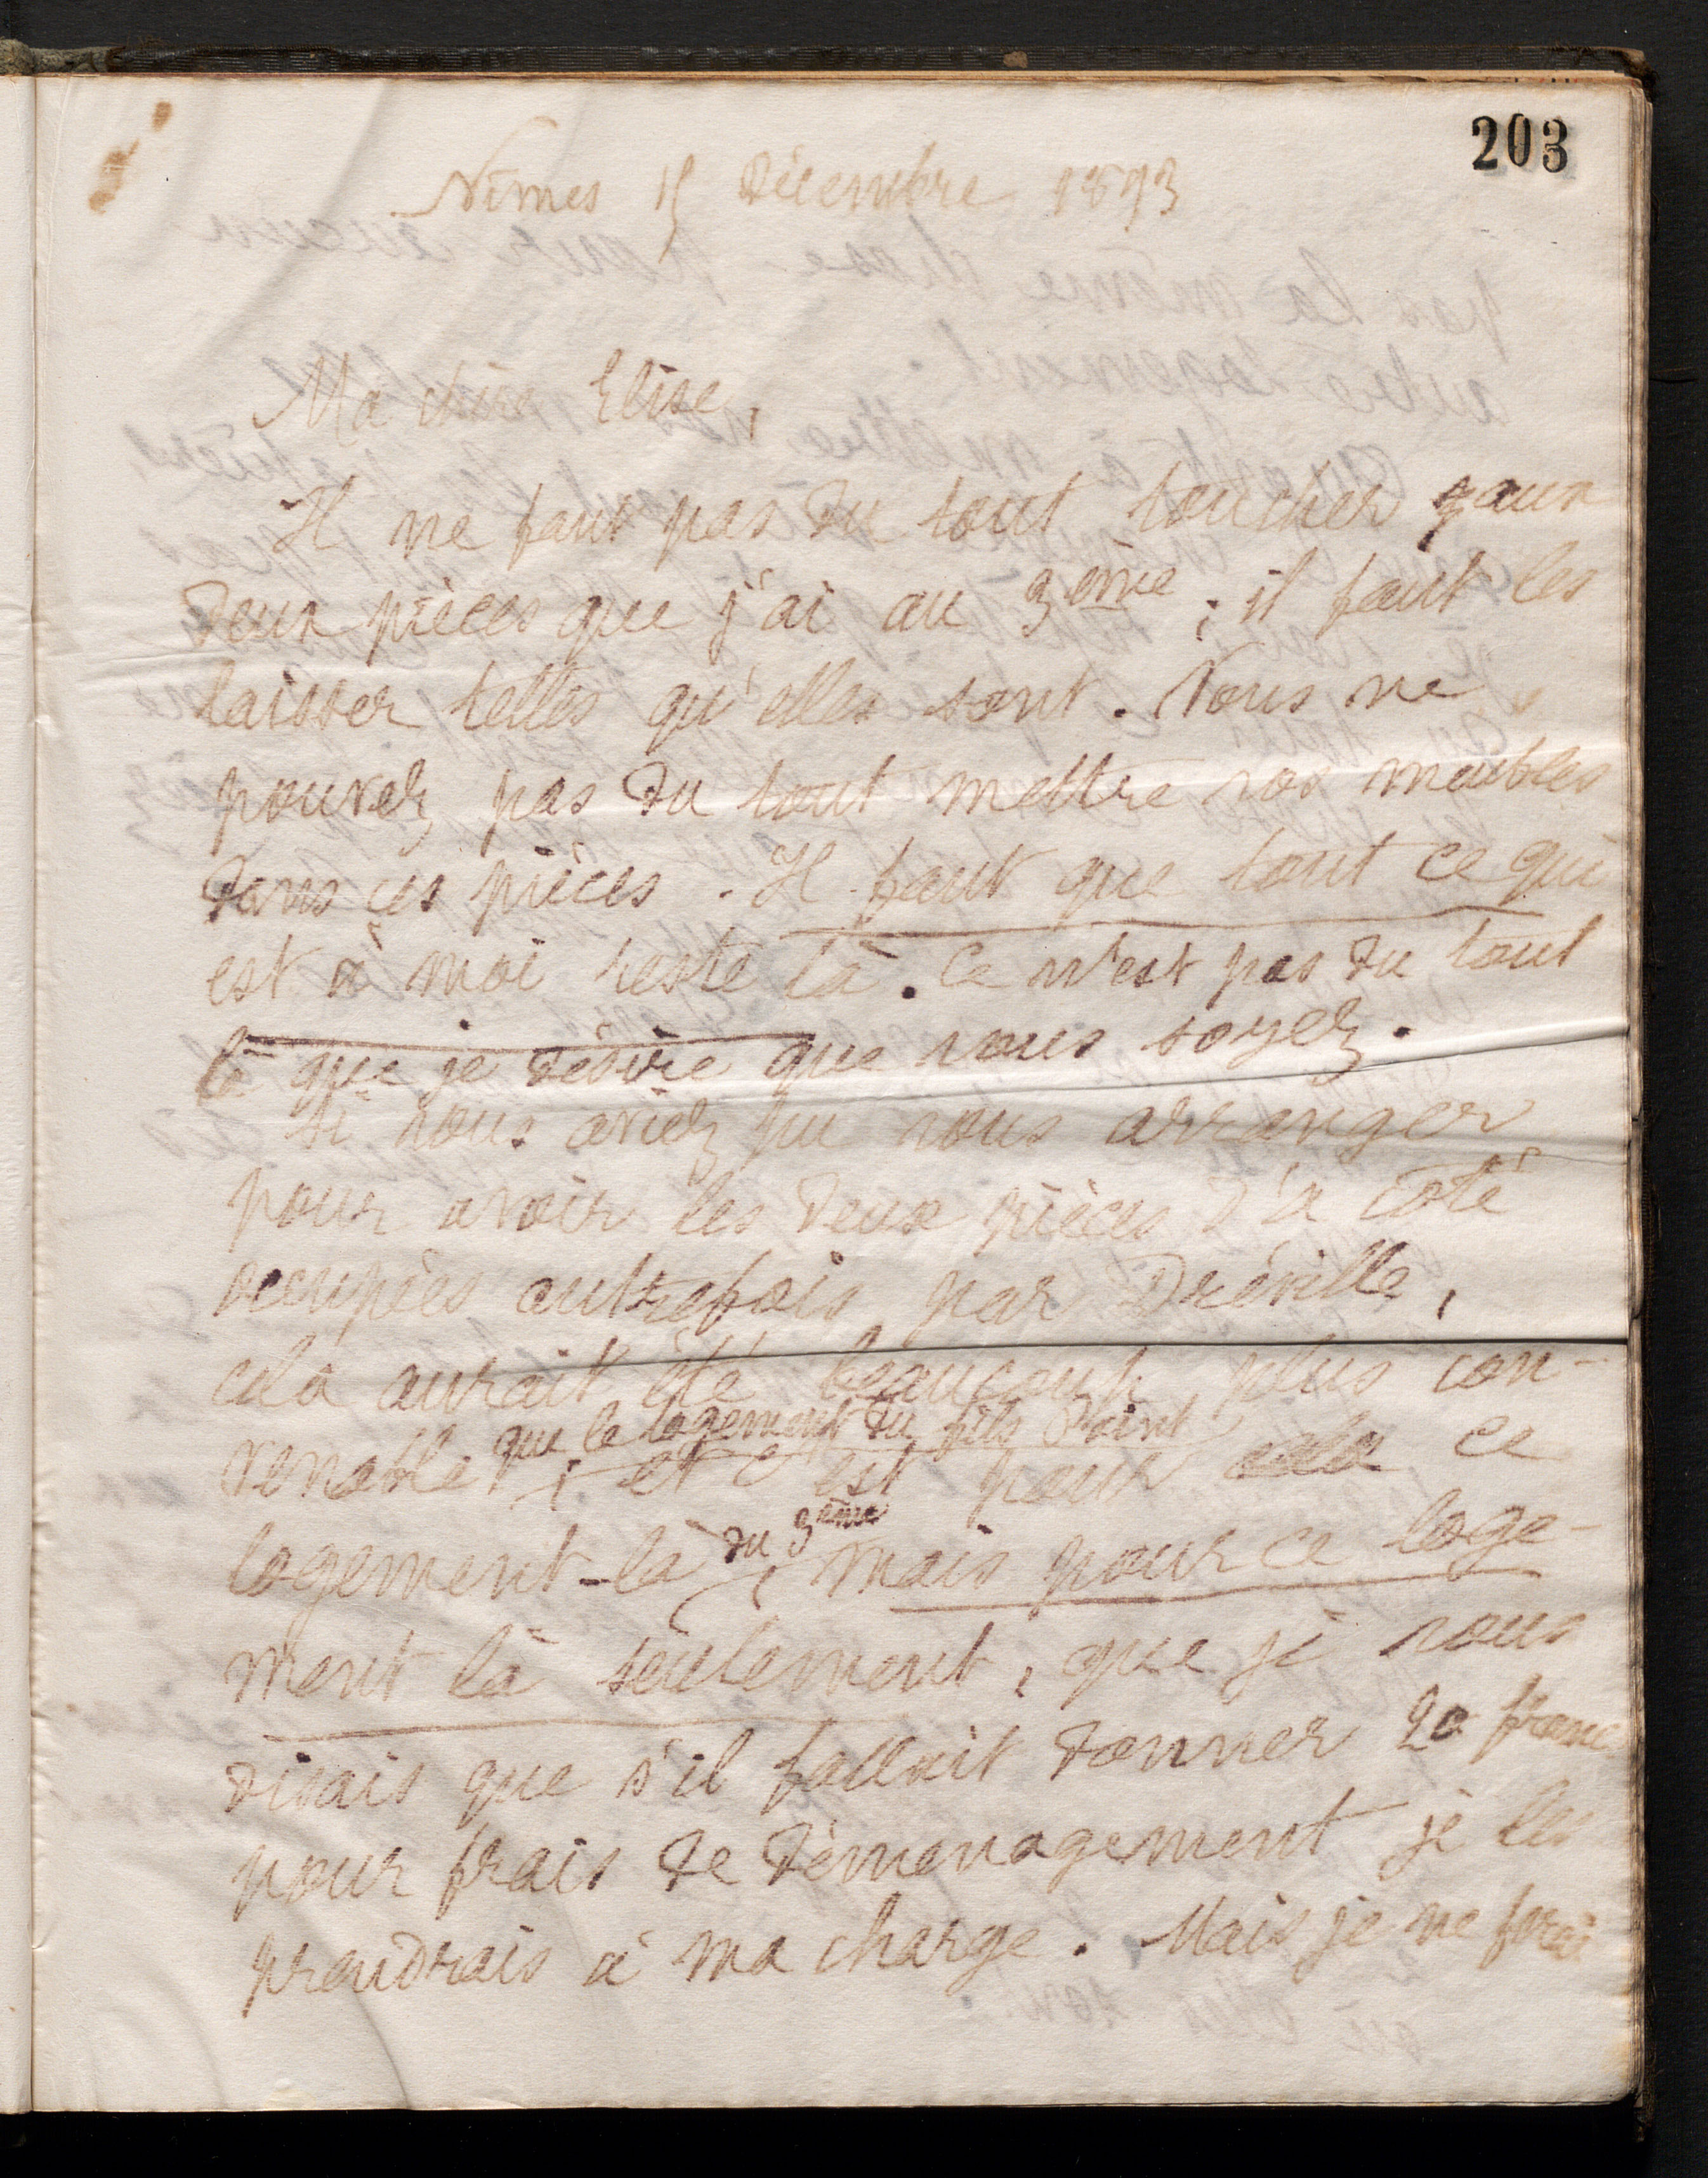 203
Nîmes 15 Décembre 1893
Ma chère Elise,
Il ne faut pas du tout toucher aux
deux pièces que j'ai au 3ème ; il faut les
laisser telles qu'elles sont. Vous ne
pouvez pas du tout mettre vos meubles
dans ces pièces. Il faut que tout ce qui
est à moi reste là. Ce n'est pas du tout
là que je désire que vous soyez.
Si vous aviez pu vous arranger
pour avoir les deux pièces d'à côté
occupées autrefois par Dréville,
cela aurait été beaucoup plus con-
venable que le logement du fils ; et c'est pour ce
logement-là du 3ème, mais pour ce loge-
ment là seulement, que je vous
disais que s'il fallait donner 20 francs
pour frais de déménagement je les
prendrais à ma charge. Mais je ne ferai